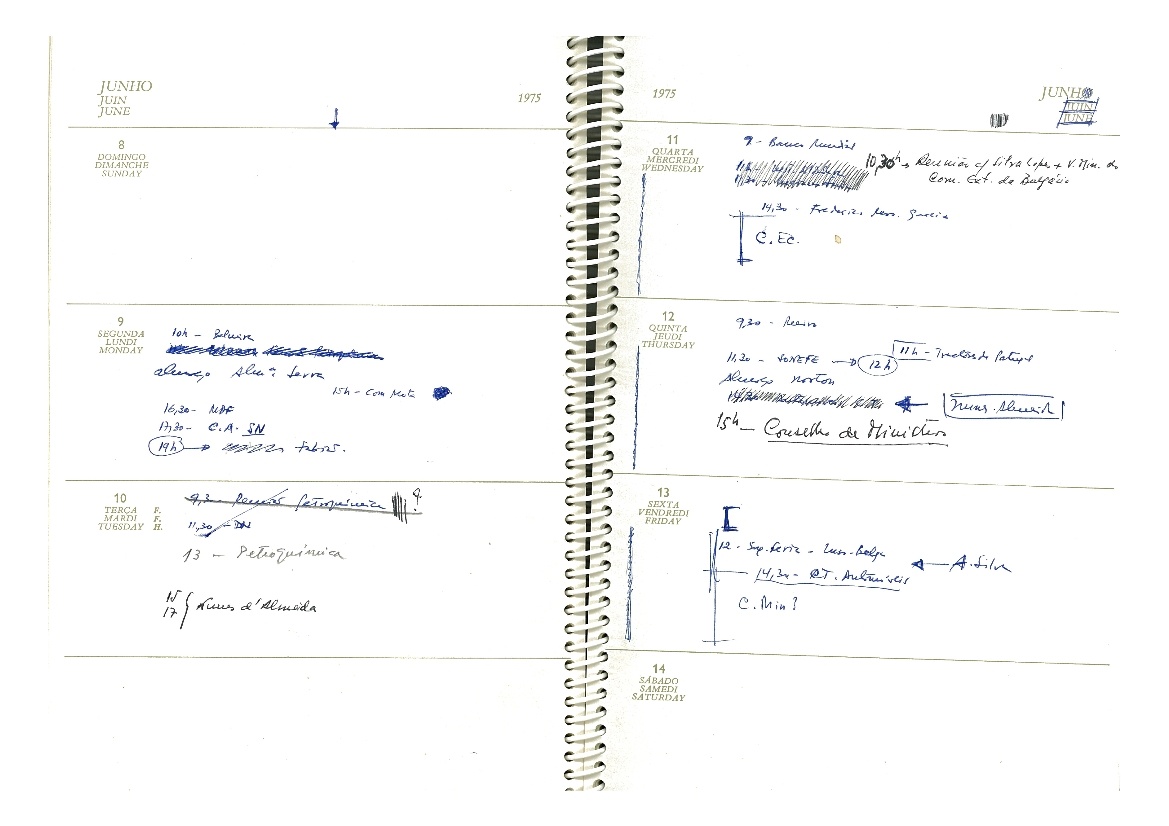 JUNHO
JUIN
JUNE
1975
8
DOMINGO
DIMANCHE
SUNDAY
9
SEGUNDA
LUNDI
MONDAY
10h -
almoço Serra
15h - Com Mota
16,30- MDF
17,30- C.A. SN
19h
10
TERÇA F.
MARDI F.
TUESDAY H.
9,30 Reunião Petroquímica ?
11,30 -
13 - Petroquímica
15
17 Nunes d'Almeida
1975
JUNHO
JUIN
JUNE
11
QUARTA
MERCREDI
WEDNESDAY
9 - Banco Mundial
10,30h Reunião c/ Silva Lopes + V. Min. do
Com. Ext. da Bulgária
14,30 -
C. Ec.
12
QUINTA
JEUDI
THURSDAY
9,30 -
11h - de Portugal
11,30 - SONEFE 12h
Almoço Norton
Nunes Almeida
15h - Conselho de Ministros
13
SEXTA
VENDREDI
FRIDAY
12 -
14,30- Automóveis A. Silva
C. Min?
14
SÁBADO
SAMEDI
SATURDAY